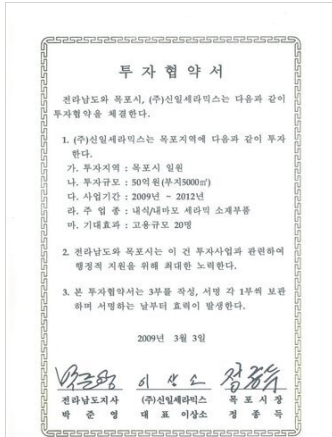 투 자 협 약 서
전라남도와 목포시, (주)신일세라믹스는 다음과 같이
투자협약을 체결한다.
1. (주)신일세라믹스는 목포지역에 다음과 같이 투자
한다.
가. 투자지역 : 목포시 일원
나. 투자규모 : 50억원(부지5000㎡)
다. 사업기간 : 2009년 ~ 2012년
라. 주 업 종 : 내식/내마모 세라믹 소재부품
마. 기대효과 : 고용규모 20명
2. 전라남도와 목포시는 이 건 투자사업과 관련하여
행정적 지원을 위해 최대한 노력한다.
3. 본 투자협약서는 3부를 작성, 서명 각 1부씩 보관
하며 서명하는 날부터 효력이 발생한다.
2009년 3월 3일
박준영 이상소 정종득
전라남도지사 (주)신일세라믹스 목 포 시 장
박 준 영 대 표 이상소 정 종 득